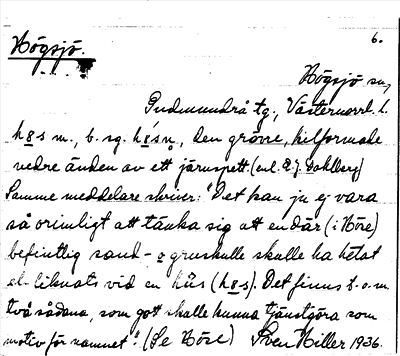 Högsjö.
6.
Högsjö sn,
Gudmundrå tg., Västernorrl. l.
hɵ̄s m., b. sg. hɵ̄sn̥, den grövre, kilformade
nedre änden av ett järnspett. (enl. E. J. Dahlberg)
Samme meddelare skriver: "Det kan ju ej vara
så orimligt att tänka sig att en där (i Höse)
befintlig sand- o. gruskulle skulle ha hetat
el. liknats vid en hüs (hɵ̄s). Det finns t.o.m.
två sådana, som gott skulle kunna tjänstgöra som
motiv för namnet". (Se Höse) Sven Hiller 1936.